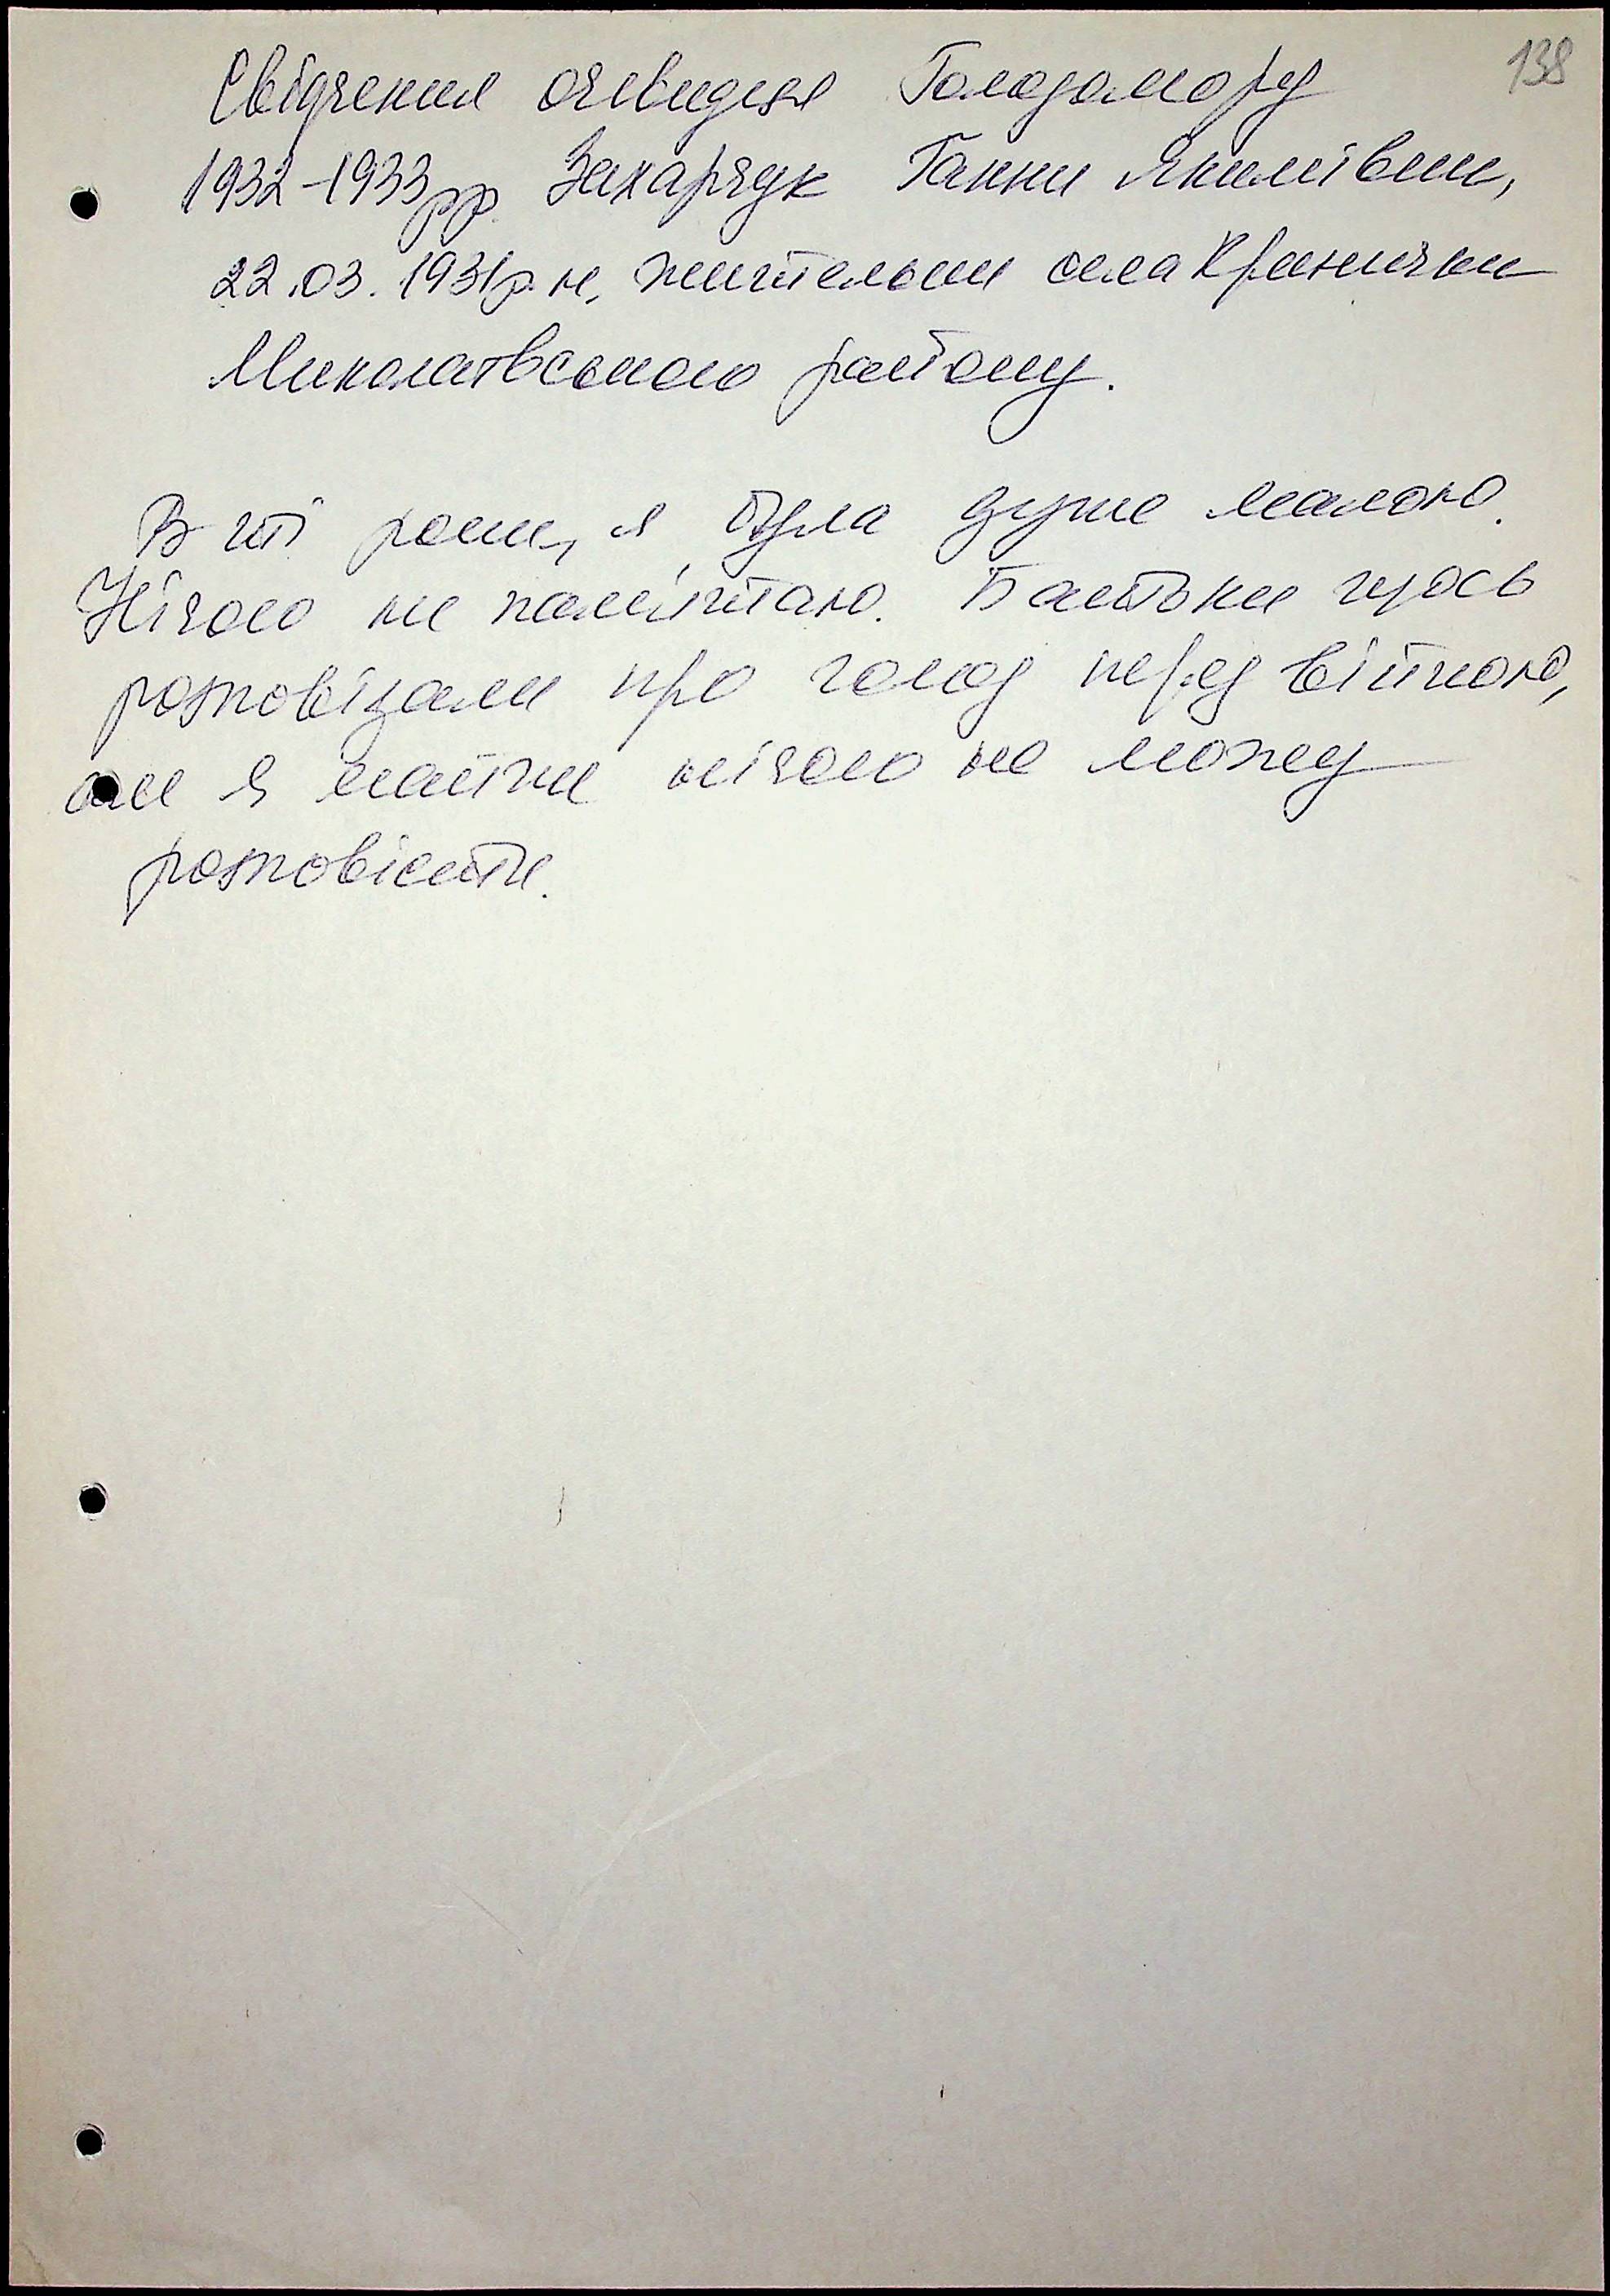 138
Свідчення очевидця Голодомору
1932-1933рр. Захарчук Ганни Якимівни,
22.03.1931р.н, жительки села Кринички
Миколаївського району.
В ті роки, я була дуже малою.
Нічого не пам'ятаю. Батьки щось
розповідали про голод перед війною,
але я майже нічого не можу
розповісти.